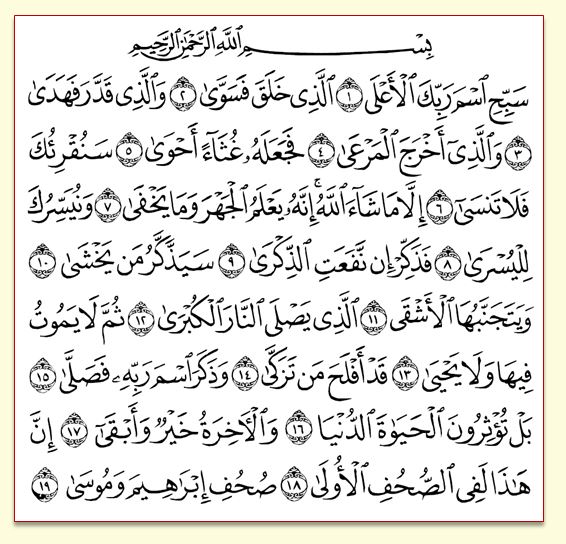 بِسْمِ ٱللَّهِ ٱلرَّحْمَٰنِ ٱلرَّحِيمِ
سَبِّحِ ٱسْمَ رَبِّكَ ٱلْأَعْلَى ١ ٱلَّذِى خَلَقَ فَسَوَّىٰ ٢ وَٱلَّذِى قَدَّرَ فَهَدَىٰ
٣ وَٱلَّذِىٓ أَخْرَجَ ٱلْمَرْعَىٰ ٤ فَجَعَلَهُۥ غُثَآءً أَحْوَىٰ ٥ سَنُقْرِئُكَ
فَلَا تَنسَىٰٓ ٦ إِلَّا مَا شَآءَ ٱللَّهُ ۚ إِنَّهُۥ يَعْلَمُ ٱلْجَهْرَ وَمَا يَخْفَىٰ ٧ وَنُيَسِّرُكَ
لِلْيُسْرَىٰ ٨ فَذَكِّرْ إِن نَّفَعَتِ ٱلذِّكْرَىٰ ٩ سَيَذَّكَّرُ مَن يَخْشَىٰ ١٠
وَيَتَجَنَّبُهَا ٱلْأَشْقَى ١١ ٱلَّذِى يَصْلَى ٱلنَّارَ ٱلْكُبْرَىٰ ١٢ ثُمَّ لَا يَمُوتُ
فِيهَا وَلَا يَحْيَىٰ ١٣ قَدْ أَفْلَحَ مَن تَزَكَّىٰ ١٤ وَذَكَرَ ٱسْمَ رَبِّهِۦ فَصَلَّىٰ ١٥
بَلْ تُؤْثِرُونَ ٱلْحَيَوٰةَ ٱلدُّنْيَا ١٦ وَٱلْأَخِرَةُ خَيْرٌ وَأَبْقَىٰٓ ١٧ إِنَّ
هَٰذَا لَفِى ٱلصُّحُفِ ٱلْأُولَىٰ ١٨ صُحُفِ إِبْرَٰهِيمَ وَمُوسَىٰ ١٩